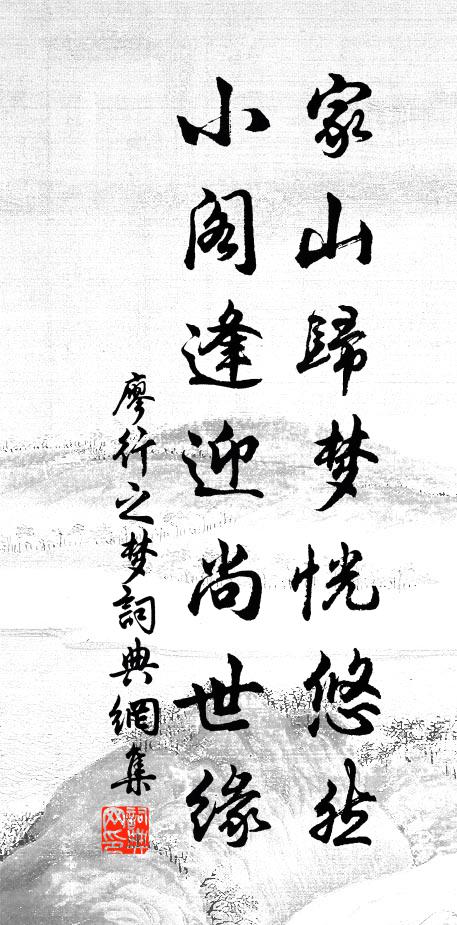 家山歸梦恍悠然
小阁逢迎尚世緣
廖行之梦詞典網集